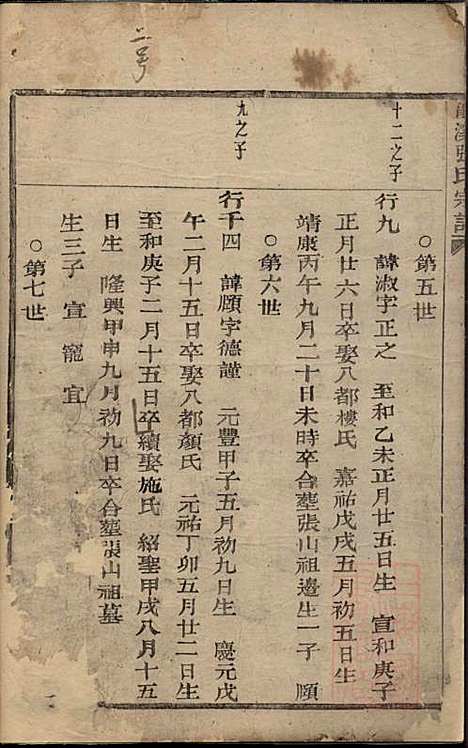 二号
溪張氏宗譜
○第五世
十二之子
行九　諱淑字正之　至和乙未正月廿五日生　宣和庚子
正月廿六日卒娶八都樓氏　嘉祐戊戌五月初五日生
靖康丙午九月二十日未時卒合塟張山祖邊生一子　順
○第六世
九之子
行千四　諱順字德謹　元豐甲子五月初九日生　慶元戊
午二月十五日卒娶八都顏氏　元祐丁卯五月廿二日生
至和庚子二月十五日卒續娶施氏　紹聖甲戌八月十五
日生　隆興甲申九月初九日卒合塟張山祖墓
生三子　宣　寵　宜
○第七世